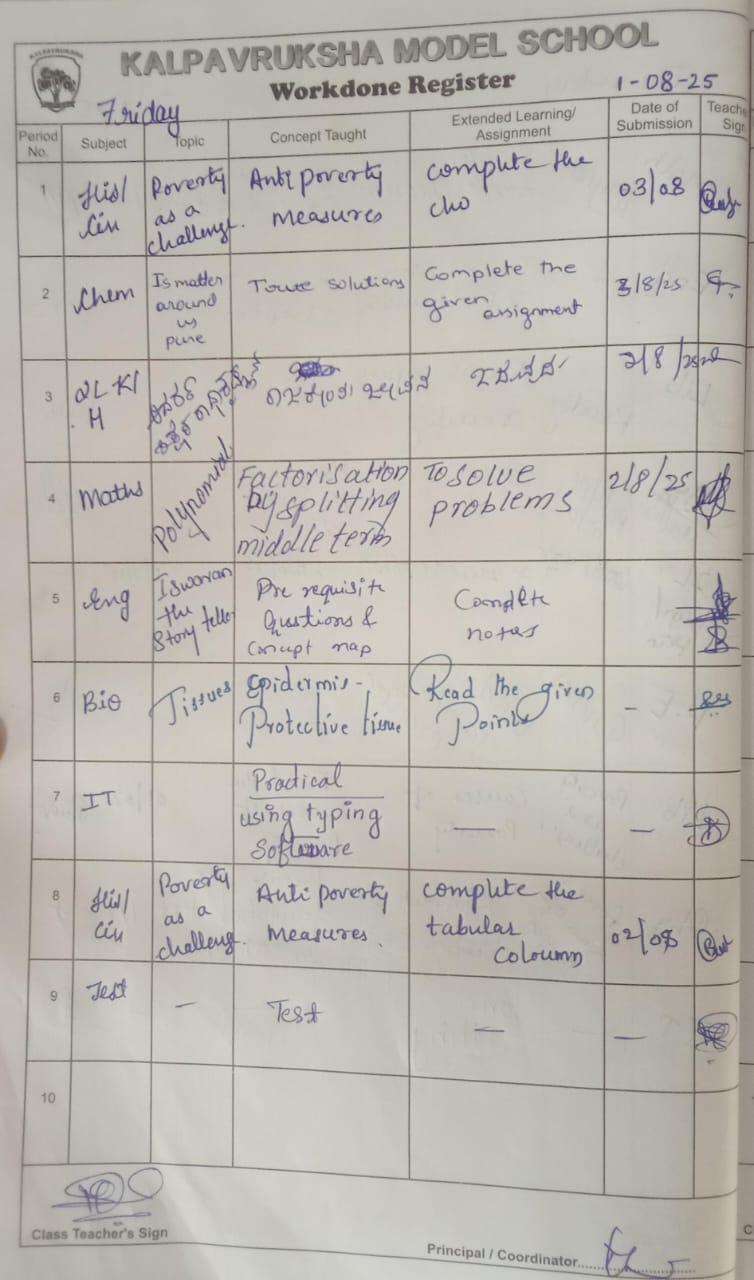 KALPAVRUKSHA
KALPAVRUKSHA MODEL SCHOOL
Workdone Register
Friday
1-08-25
Period No.
Subject
Topic
Concept Taught
Extended Learning/
Assignment
Date of
Submission
Teache
Sign
1
His/
Civ
Poverty
as a
challenge.
Anti poverty
measures
complete the
cho
03/08
2
Chem
Is matter
around
us
pure
solutions
Complete the
given
assignment
3/8/25
3
2L K/
H
2/8/25
4
Maths
Polynomial
Factorisation
by splitting
middle term
To solve
problems
2/8/25
5
Eng
Iswaran
the
story teller
Pre requisite
Questions &
Concept map
notes
6
Bio
Tissues
Epidermis -
Protective tissue
Read the given
Points
-
7
IT
Practical
using typing
Software
—
—
8
His/
Civ
Poverty
as a
challeng.
Anti poverty
measures.
complete the
tabular
coloumn
02/08
9
Test
—
Test
—
—
10
Class Teacher's Sign
Principal / Coordinator